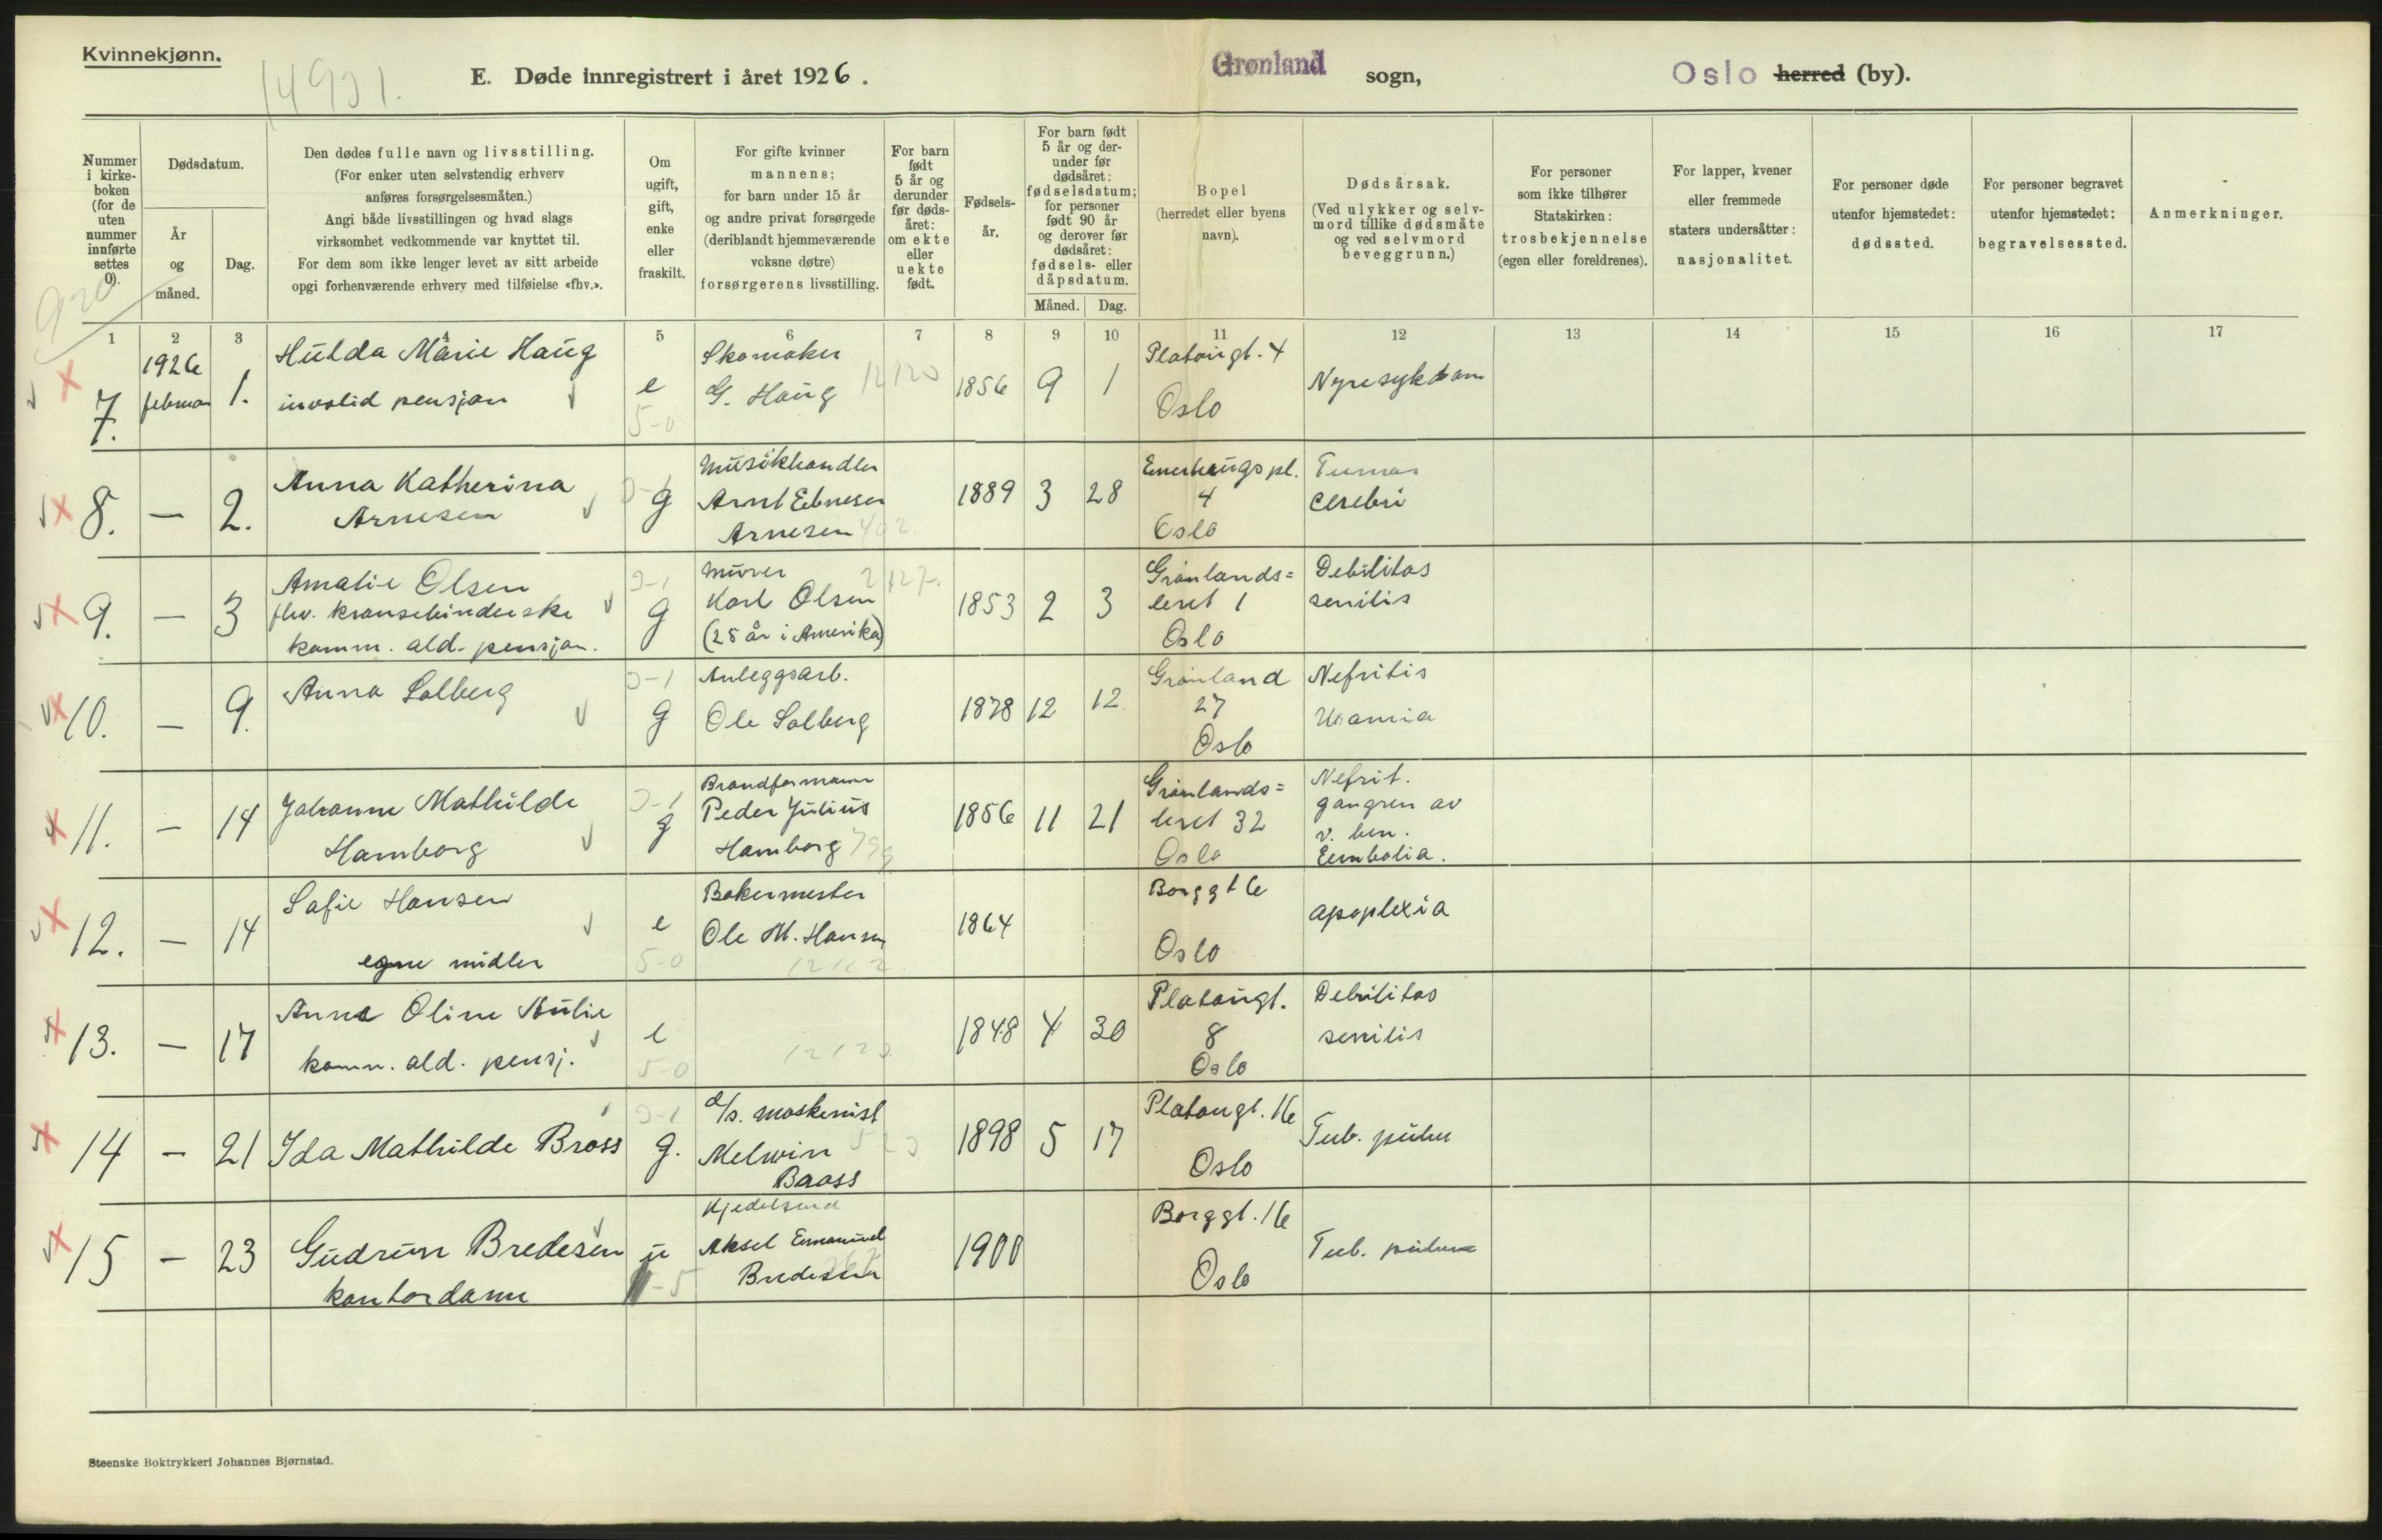 Kvinnekjønn.
14931.
E. Døde innregistrert i året 1926.
Grønland sogn,
Oslo herred (by).
Nummer i kirke-boken (for de uten nummer innførte settes 0).
Dødsdatum.
År og måned.
Dag.
Den dødes fulle navn og livsstilling.
(For enker uten selvstendig erhverv
anføres forsørgelsesmåten.)
Angi både livsstillingen og hvad slags
virksomhet vedkommende var knyttet til.
For dem som ikke lenger levet av sitt arbeide
opgi forhenværende erhverv med tilføielse «fhv.».
Om ugift, gift, enke eller fraskilt.
For gifte kvinner
mannens;
for barn under 15 år
og andre privat forsørgede
(deriblandt hjemmeværende
voksne døtre)
forsørgerens livsstilling.
For barn født 5 år og derunder før døds-året: om ekte eller uekte født.
Fødsels-år.
For barn født 5 år og der-under før dødsåret: fødselsdatum; for personer født 90 år og derover før dødsåret: fødsels- eller dåpsdatum.
Måned.
Dag.
Bopel
(herredet eller byens
navn).
Dødsårsak.
(Ved ulykker og selv-
mord tillike dødsmåte
og ved selvmord
beveggrunn.)
For personer
som ikke tilhører
Statskirken:
trosbekjennelse
(egen eller foreldrenes).
For lapper, kvener
eller fremmede
staters undersåtter:
nasjonalitet.
For personer døde
utenfor hjemstedet:
dødssted.
For personer begravet
utenfor hjemstedet:
begravelsessted.
Anmerkninger.
1 2 3 5 6 7 8 9 10 11 12 13 14 15 16 17
7. 1926 februar 1. Hulda Marie Haug
invalid pensjon
e
5-0
Skomaker
G. Haug
12120
1856 9 1
Platougt. 4
Oslo
Nyresykdom
8. — 2. Anna Katherina
Arnesen
g
Musikhandler
Arnt
Arnesen 402
1889 3 28
Enerhaugs pl.
4
Oslo
Tumor
cerebri
9. — 3 Amalie Olsen
fhv. kransebinderske
komm. ald. pensjon.
0-1
g
Murer
Karl Olsen
(28 år i Amerika)
2127.
1853 2 3
Grønlands=
leret 1
Oslo
Debilitas
senilis
10. — 9. Anna Solberg
0-1
g
Anleggsarb.
Ole Solberg
1878 12 12
Grønland
27
Oslo
Nefritis
Uramia
11. — 14 Johanne Mathilde
Hamborg
0-1
g
Brandformann
Peder Julius
Hamborg
1856 11 21
Grønlands=
leret 32
Oslo
Nefrit.
gangren av
v. ben.
Embolia.
12. — 14 Sofie Hansen
egne midler
e
5-0
Bakermester
Ole M. Hansen
1864
Borggt 6
Oslo
apoplexia
13. — 17 Anne Oline Aulie
komm. ald. pensj.
e
5-0
12120
1848 4 30
Platougt.
8
Oslo
Debilitas
senilis
14 — 21 Ida Mathilde Bross
0-1
g.
d/s. maskinist
Melwin
Bross
1898 5 17
Platougt. 16
Oslo
Tub. pulm
15 — 23 Gudrun Bredesen
kontordame
u
-5
Kjedelsmed
Aksel Emanuel
Bredesen
1900
Borggt. 16
Oslo
Tub. pulm
Steenske Boktrykkeri Johannes Bjørnstad.